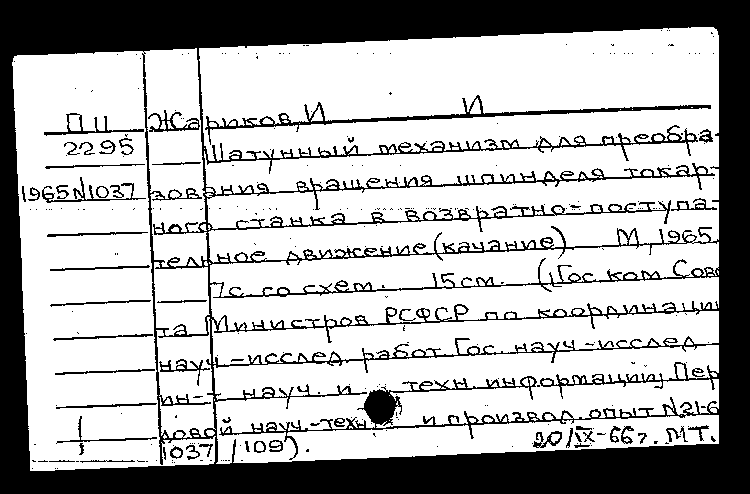 ПII Жариков, И И
2295 Шатунный механизм для преобра-
1965N1037 зования вращения шпинделя токар-
ного станка в возвратно-поступа-
тельное движение (качание) М, 1965.
7с. со схем. 15см. (Гос. ком Сове
та Министров РСФСР по координации
науч-исслед. работ Гос. науч-исслед
ин-т науч. и техн. информации. Пер
довой науч.-техн. и производ. опыт N21-6
1037/109). 20/IX-66г. МТ.